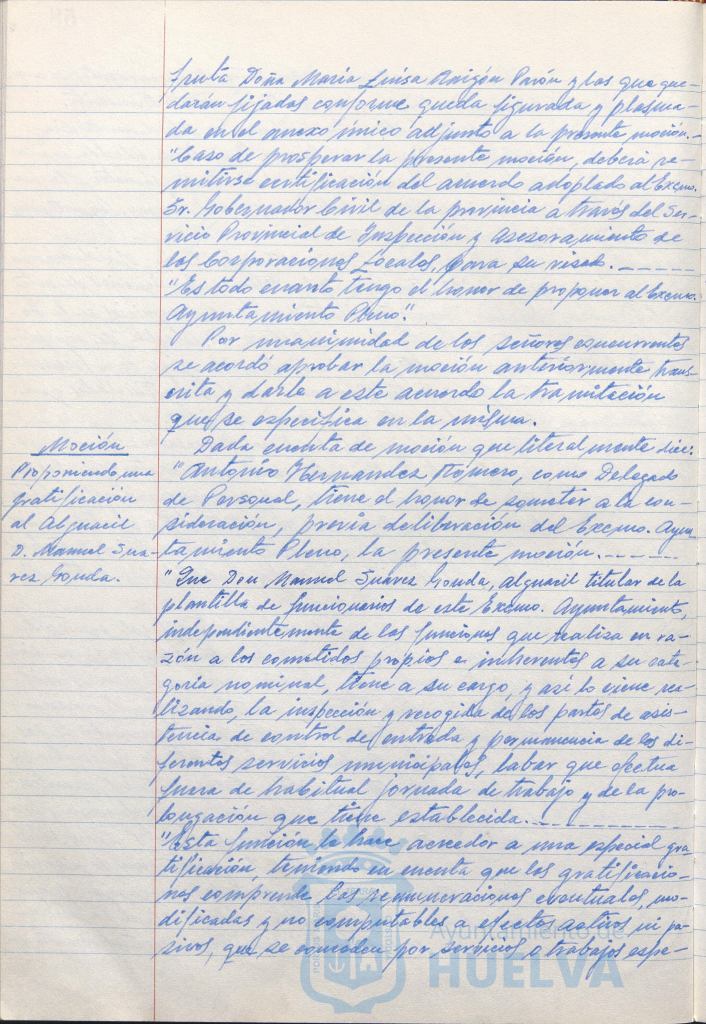 fruta Doña Maria Luisa Anigón Parón y las que que-
darán fijadas conforme queda figurada y plasma-
da en el anexo único adjunto a la presente moción.-
"Caso de prosperar la presente moción, deberá re-
mitirse certificación del acuerdo adoptado al Excmo.
Sr. Gobernador Civil de la provincia a través del Ser-
vicio Provincial de Inspección y asesoramiento de
las Corporaciones Locales, para su visado.-----
"Es todo cuanto tengo el honor de proponer al Excmo.
Ayuntamiento Pleno".
Por unanimidad de los señores concurrentes
se acordó aprobar la moción anteriormente trans
crita y darle a este acuerdo la tramitación
que se especifica en la misma.
Moción
Proponiendo una
gratificación
al Alguacil
D. Manuel Sua-
rez Gonda.
Dada cuenta de moción que literalmente dice:
"Antonio Hernandez Romero, como Delegado
de Personal, tiene el honor de someter a la con-
sideración, previa deliberación del Excmo. Ayun
tamiento Pleno, la presente moción.------
"Que Don Manuel Suarez Gonda, alguacil titular de la
plantilla de funcionarios de este Excmo. Ayuntamiento,
independientemente de las funciones que realiza en ra-
zón a los cometidos propios e inherentes a su cate-
goria nominal, tiene a su cargo, y así lo viene rea-
lizando, la inspección y recogida de los partes de asis-
tencia de control de entrada y permanencia de los di-
ferentes servicios municipales, labor que efectua
fuera de habitual jornada de trabajo y de la pro-
longación que tiene establecida.--------
"Esta función le hace acreedor a una especial gra
tificación, teniendo en cuenta que las gratificacio-
nes comprende las remuneraciones eventuales, mo-
dificadas y no computables a efectos activos ni pa-
sivos, que se conceden por servicios o trabajos espe-
Ayuntamiento de
HUELVA